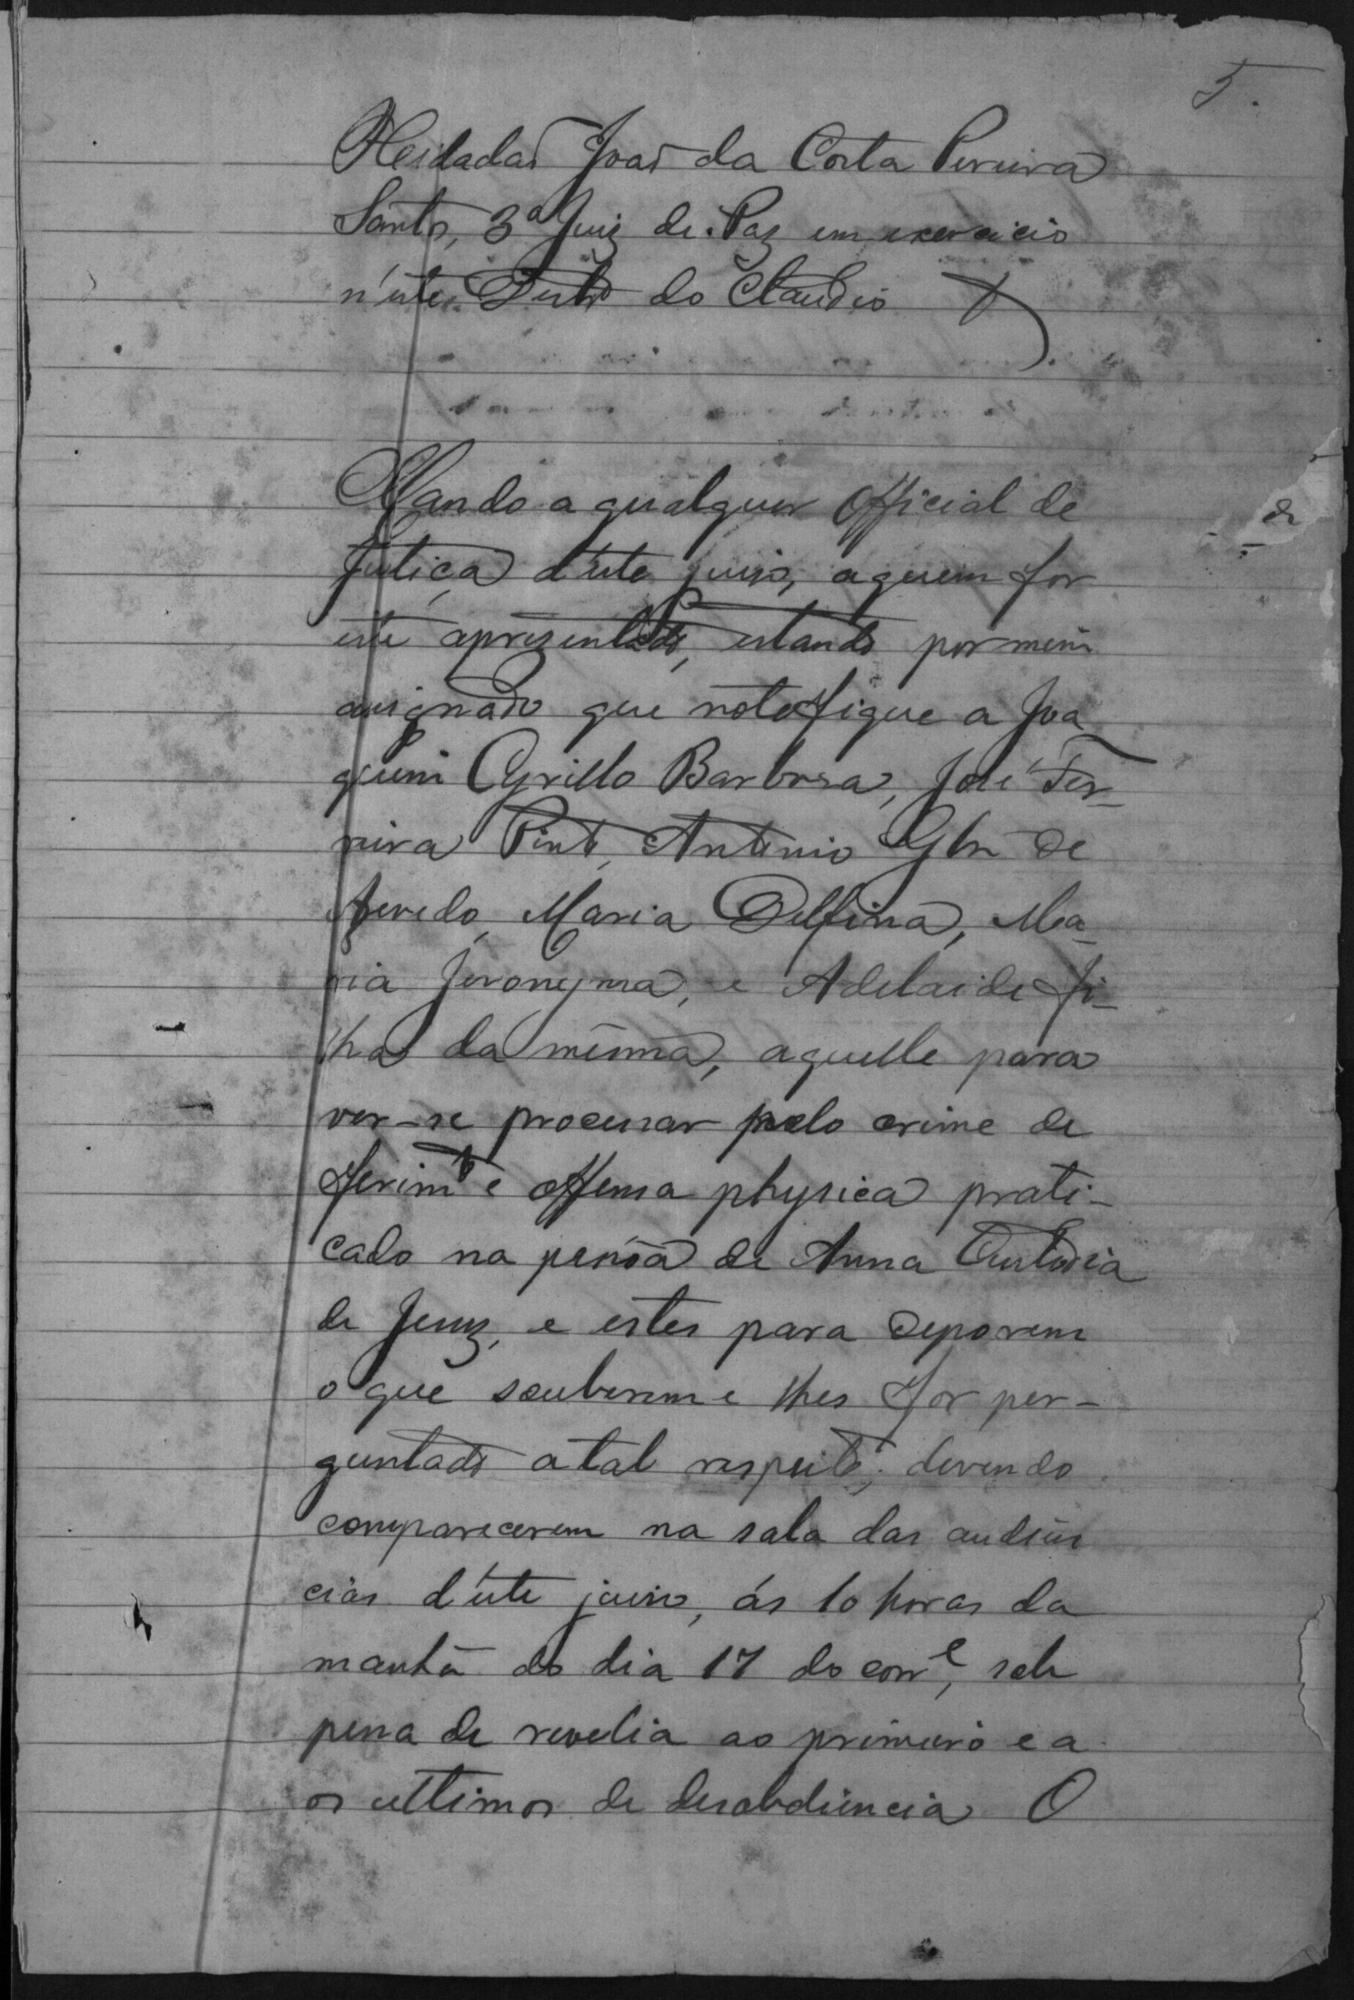 5.
Cidadão João da Costa Pereira
Santos, 3º Juiz de Paz em exercicio
n'este Destrº do Claudio
Mando a qualquer Official de
Justiça d'este juiso, aquem for
este apresentado, estando por mim
assignado que notefique a Joa
quim Cyrillo Barbosa, José Fer-
reira Pinto, Antonio Glz de
Asevedo, Maria Delfina, Ma-
ria Jeronyma, e Adelaide fi-
lha da mesma, aquelle para
ver-se processar pelo crime de
ferimtº e offensa physica prati-
cado na pessôa de Anna Custodia
de Jesus, e estes para deporem
o que souberem e lhes for per-
guntado atal respeito; devendo
comparecerem na sala das audiên
cias d'este juiso, ás 10 horas da
manhã do dia 17 do corrᵉ, sob
pena de revelia ao primeiro e a
os ultimos de desobdiencia O